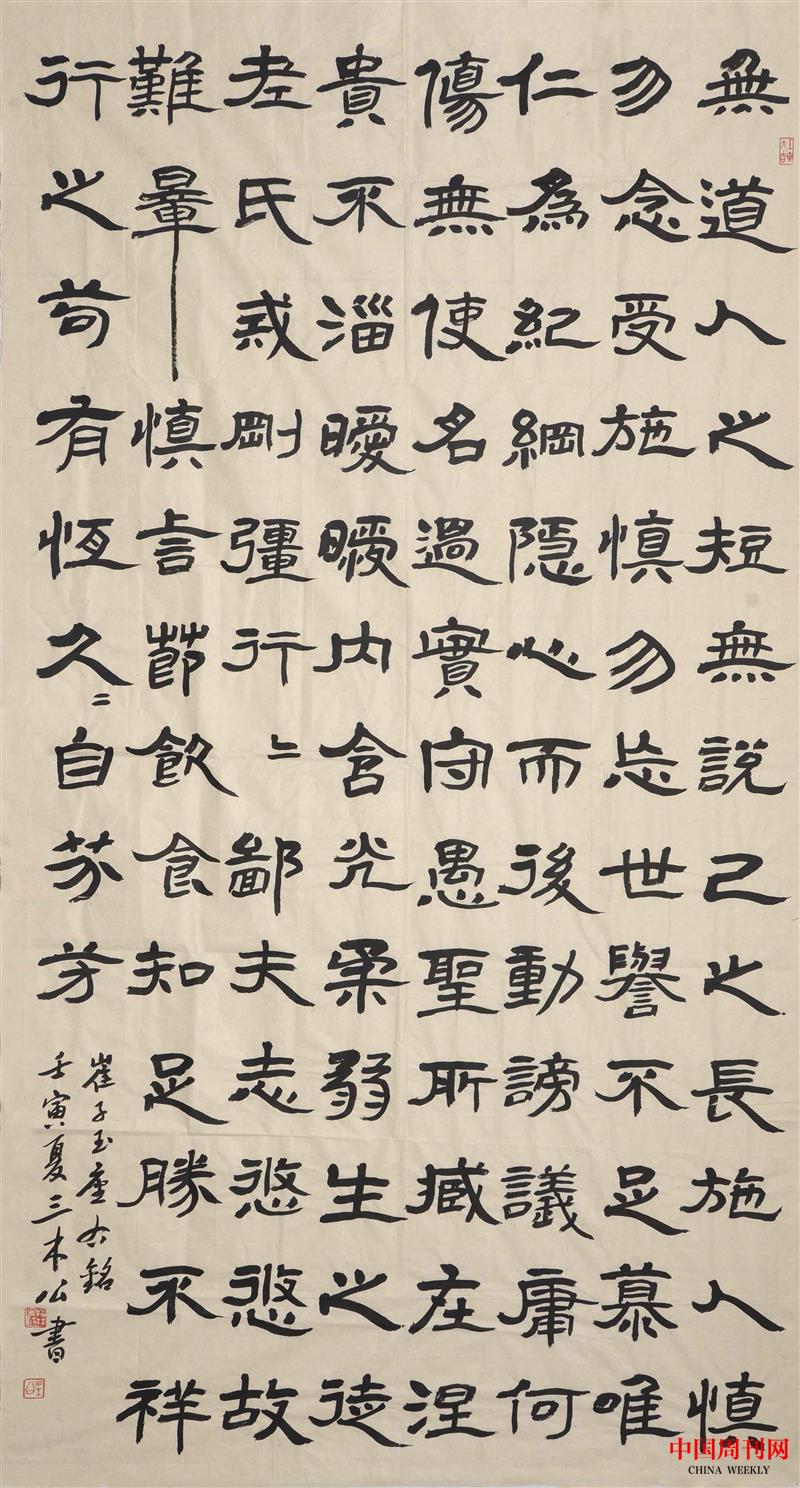 無道人之短無說己之長施人慎
勿念受施慎勿忘世譽不足慕唯
仁為紀綱隱心而後動謗議庸何
傷無使名過實守愚聖所臧在涅
貴不淄曖曖內含光柔弱生之徒
老氏戒剛彊行〻鄙夫志悠悠故
難量慎言節飲食知足勝不祥
行之苟有恆久〻自芬芳
崔子玉座右銘
壬寅夏三木公書
中国周刊网
CHINA WEEKLY